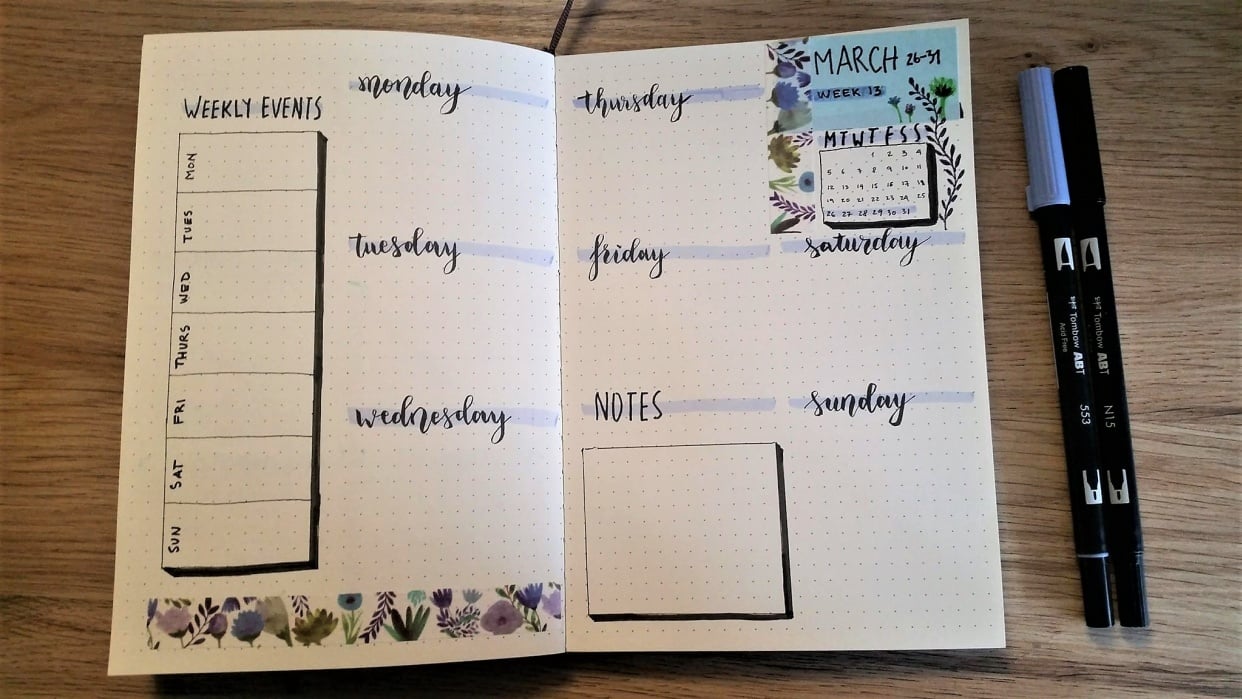 WEEKLY EVENTS
MON
TUES
WED
THURS
FRI
SAT
SUN
monday
tuesday
wednesday
thursday
friday
NOTES
MARCH 26-31
WEEK 13
M T W T F S S
1 2 3 4
5 6 7 8 9 10 11
12 13 14 15 16 17 18
19 20 21 22 23 24 25
26 27 28 29 30 31
saturday
sunday
Tombow ABT
Acid Free
553
Tombow ABT
N15